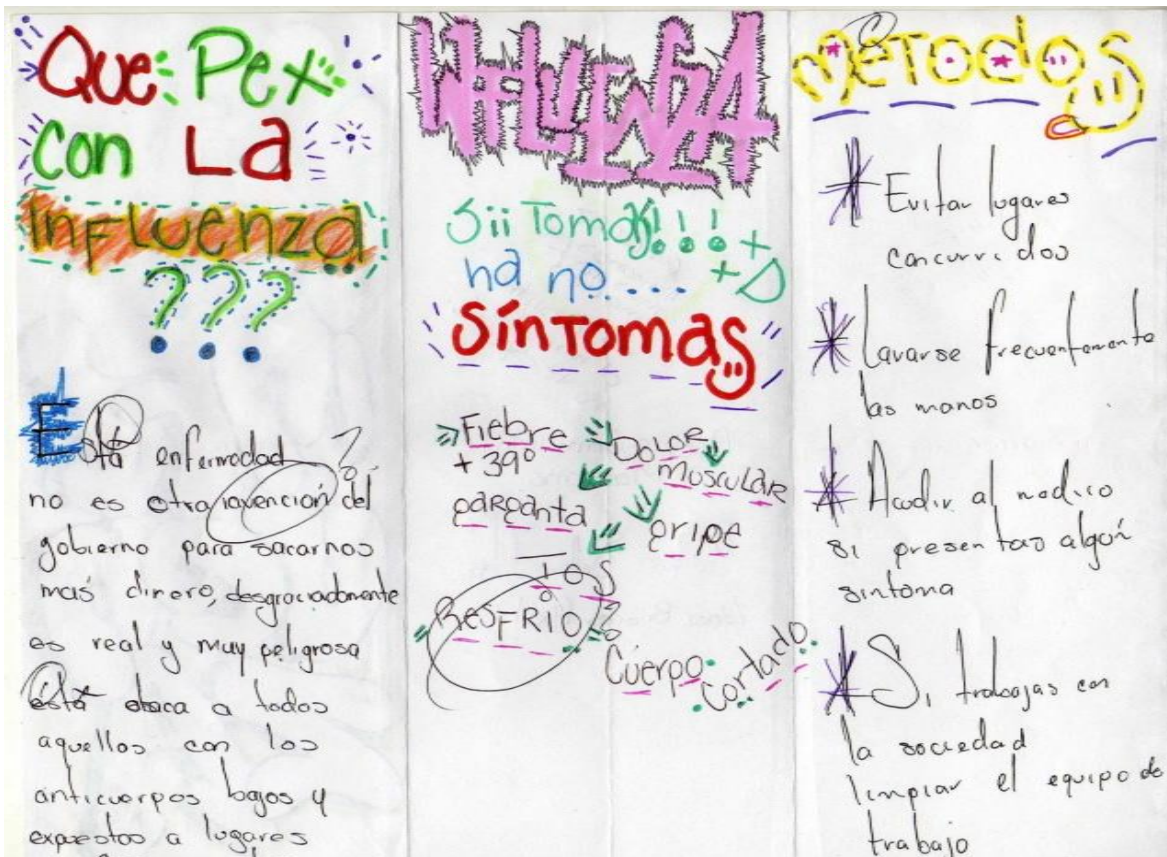 Que Pex
con La
Influenza
???
Esta enfermedad
no es otra invención del
gobierno para sacarnos
más dinero, desgraciadamente
es real y muy peligrosa
ésta ataca a todos
aquellos con los
anticuerpos bajos y
expuestos a lugares
INFLUENZA
Sii Tomas!!! +
na no.... +D
SínTomas
Fiebre
+ 39°
DOLOR
MUSCULAR
garganta
gripe
TOS
RESFRIO
?
Cuerpo
Cortado
MÉTODOS
* Evitar lugares
concurridos
* Lavarse frecuentemente
las manos
* Acudir al medico
si presentas algún
sintoma
* Si trabajas con
la sociedad
limpiar el equipo de
trabajo